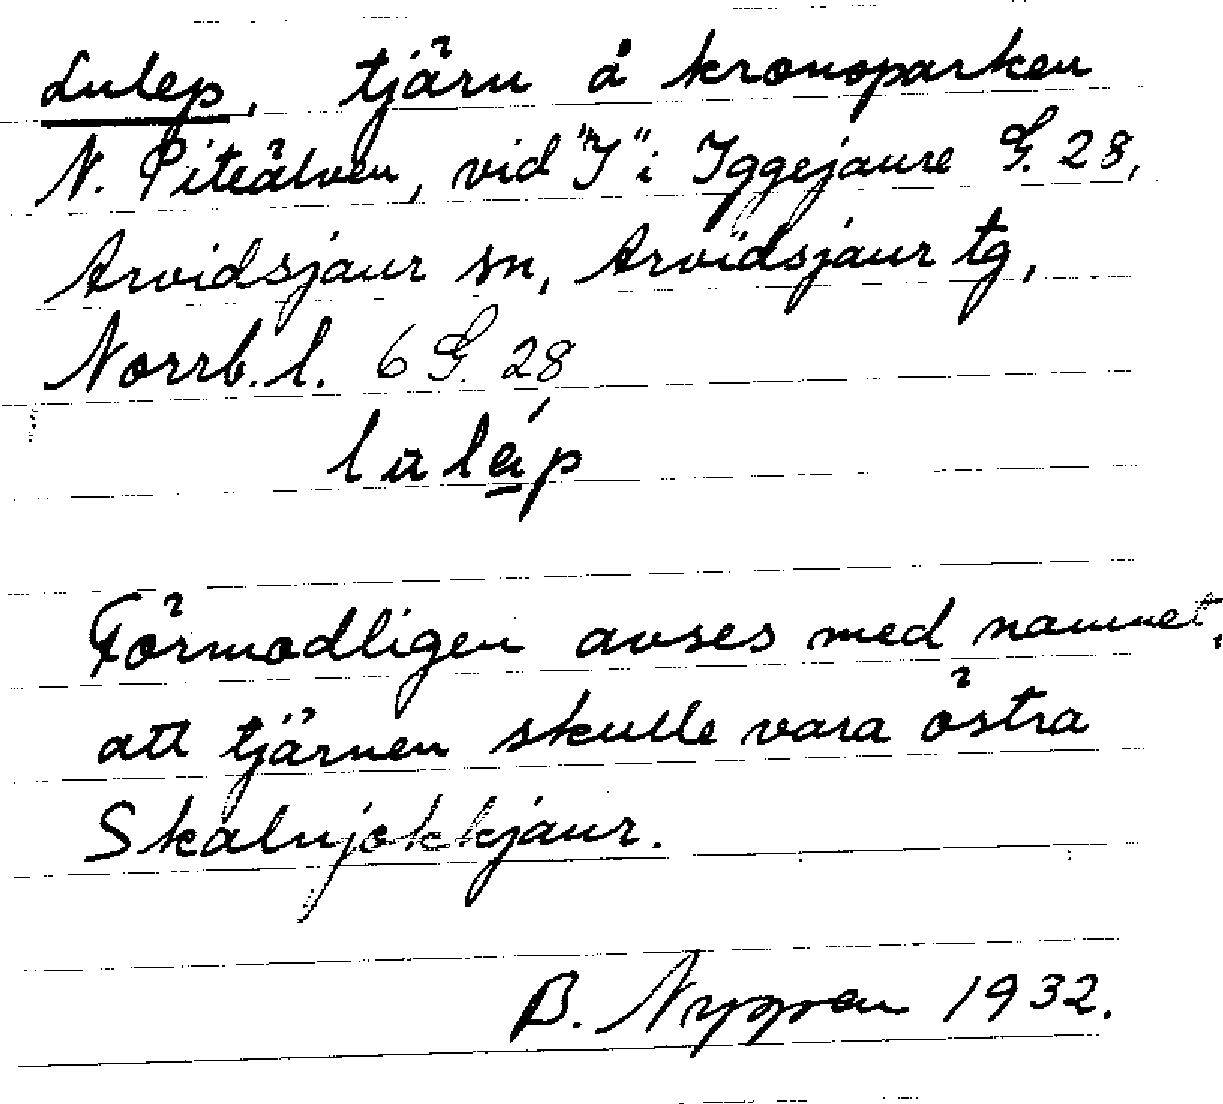 Lulep, tjärn å kronoparken
N. Piteälven, vid "I" i Iggejaure G. 28,
Arvidsjaur sn, Arvidsjaur tg,
Norrb. l. 6 G. 28
Förmodligen avses med namnet,
att tjärnen skulle vara östra
Skalnjokkjaur.
B. Nygren 1932.